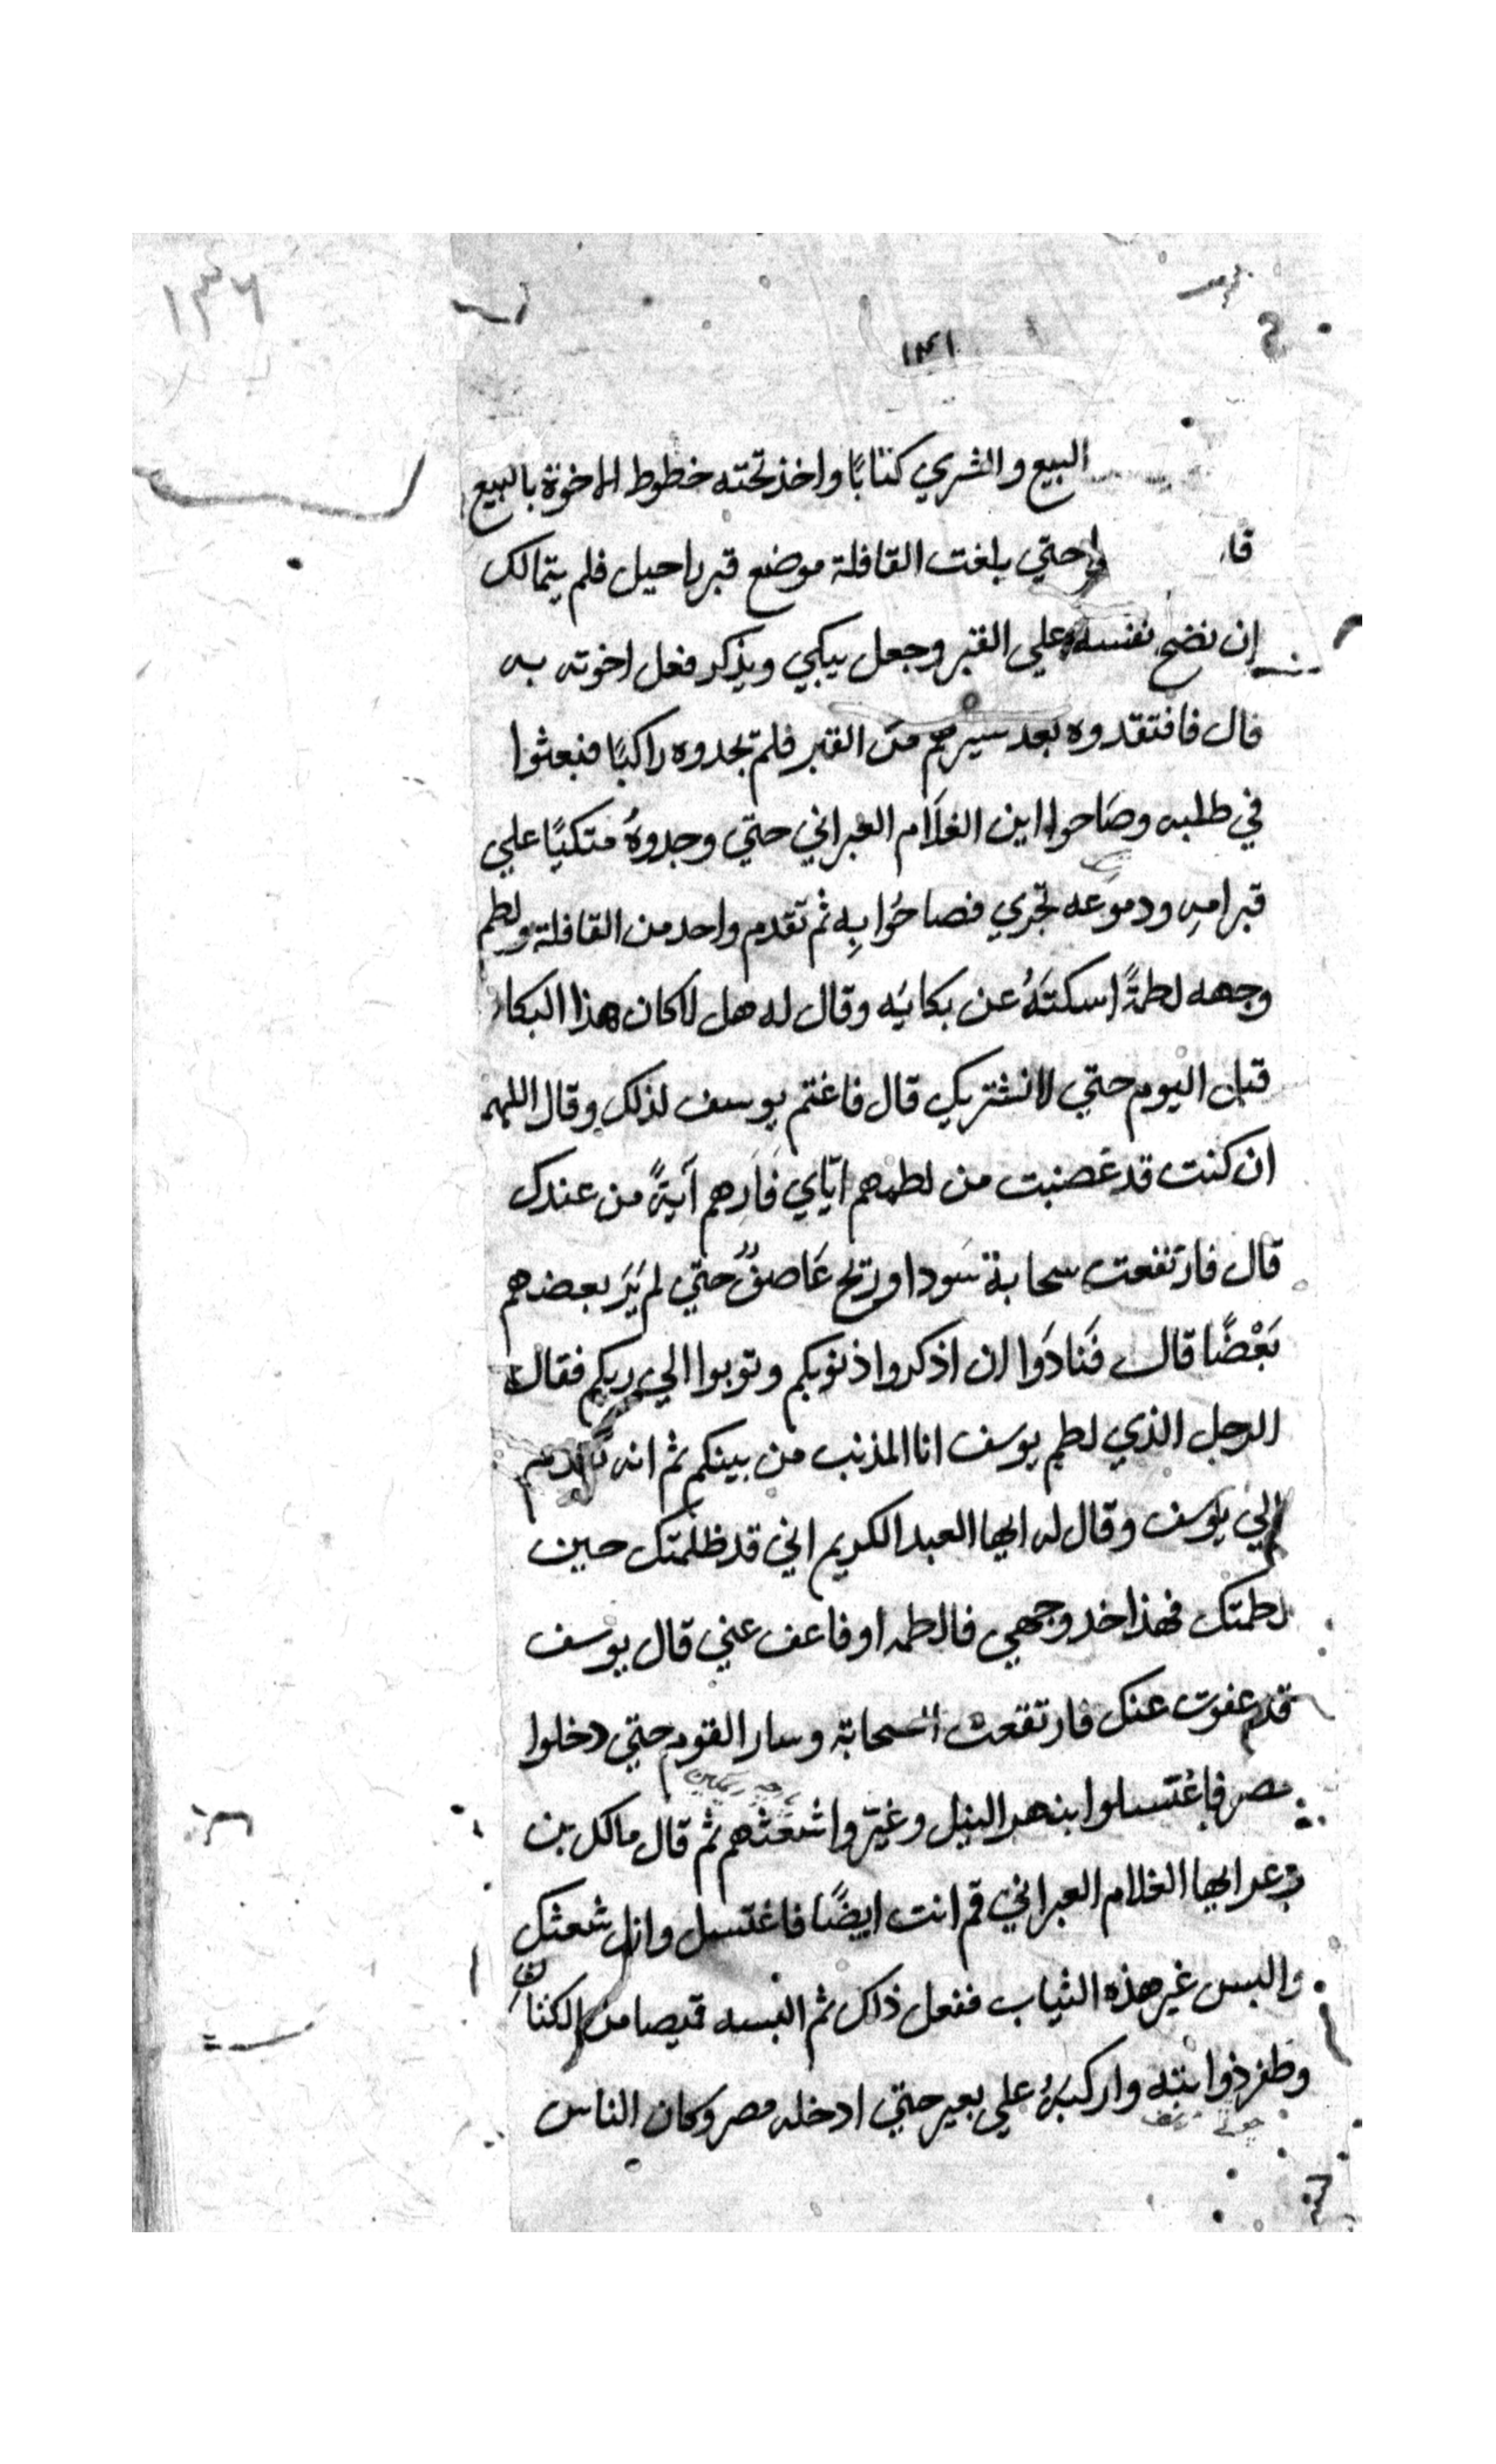 ١٣٦
١٣١
البيع والشري كتابًا واخذ تحته خطوط الاخوة بالبيع
قا وا حتي بلغت القافلة موضع قبر راحيل فلم يتمالك
ان نضح نفسه علي القبر وجعل يبكي ويذكر فعل اخوته به
قال فافتقدوه بعد سيرهم من القبر فلم تجدوه راكبًا فبعثوا
في طلبه وصَاحوا اين الغلَام العبراني حتي وجدوهُ متكيًا علي
قبر امهِ ودموعه تجري فصاحُوا بِه ثم تقدم واحد من القافلة ولطم
وجهه لطمةً اسكتَهُ عن بكايَه وقال له هل لا كان هذا البكا
قبل اليوم حتي لا نشتريك قال فاغتم يوسف لذلك وقال اللهم
ان كنت قد غضبت من لطمهم ايّاي فَارِهم آيةً من عندك
قال فارتفعت سحابة سَودا وريح عَاصفٌ حتي لم يَرَ بعضهم
بَعْضًا قال فَنادَوا ان اذكروا ذنوبكم وتوبوا الي ربكم فقال
الرجل الذي لطم يوسف انا المذنب من بينكم ثم انه تقدم
الي يوسف وقال له ايها العبد الكريم اني قد ظلمتك حين
لطمتك فهذا خد وجهي فالطمه او فاعف عني قال يوسف
قد عفوت عنك فارتفعت السحابة وسار القوم حتي دخلوا
مصر فاغتسلوا بنهر النيل وغيّروا شعثهم ثم قال مالك بن
دعر ايها الغلام العبراني قم انت ايضًا فاغتسل وازل شعثك
والبس غير هذه الثياب ففعل ذاك ثم البسه قميصا من الكتان
وظفر ذوابته واركبَهُ علي بعير حتي ادخله مصر وكان الناس